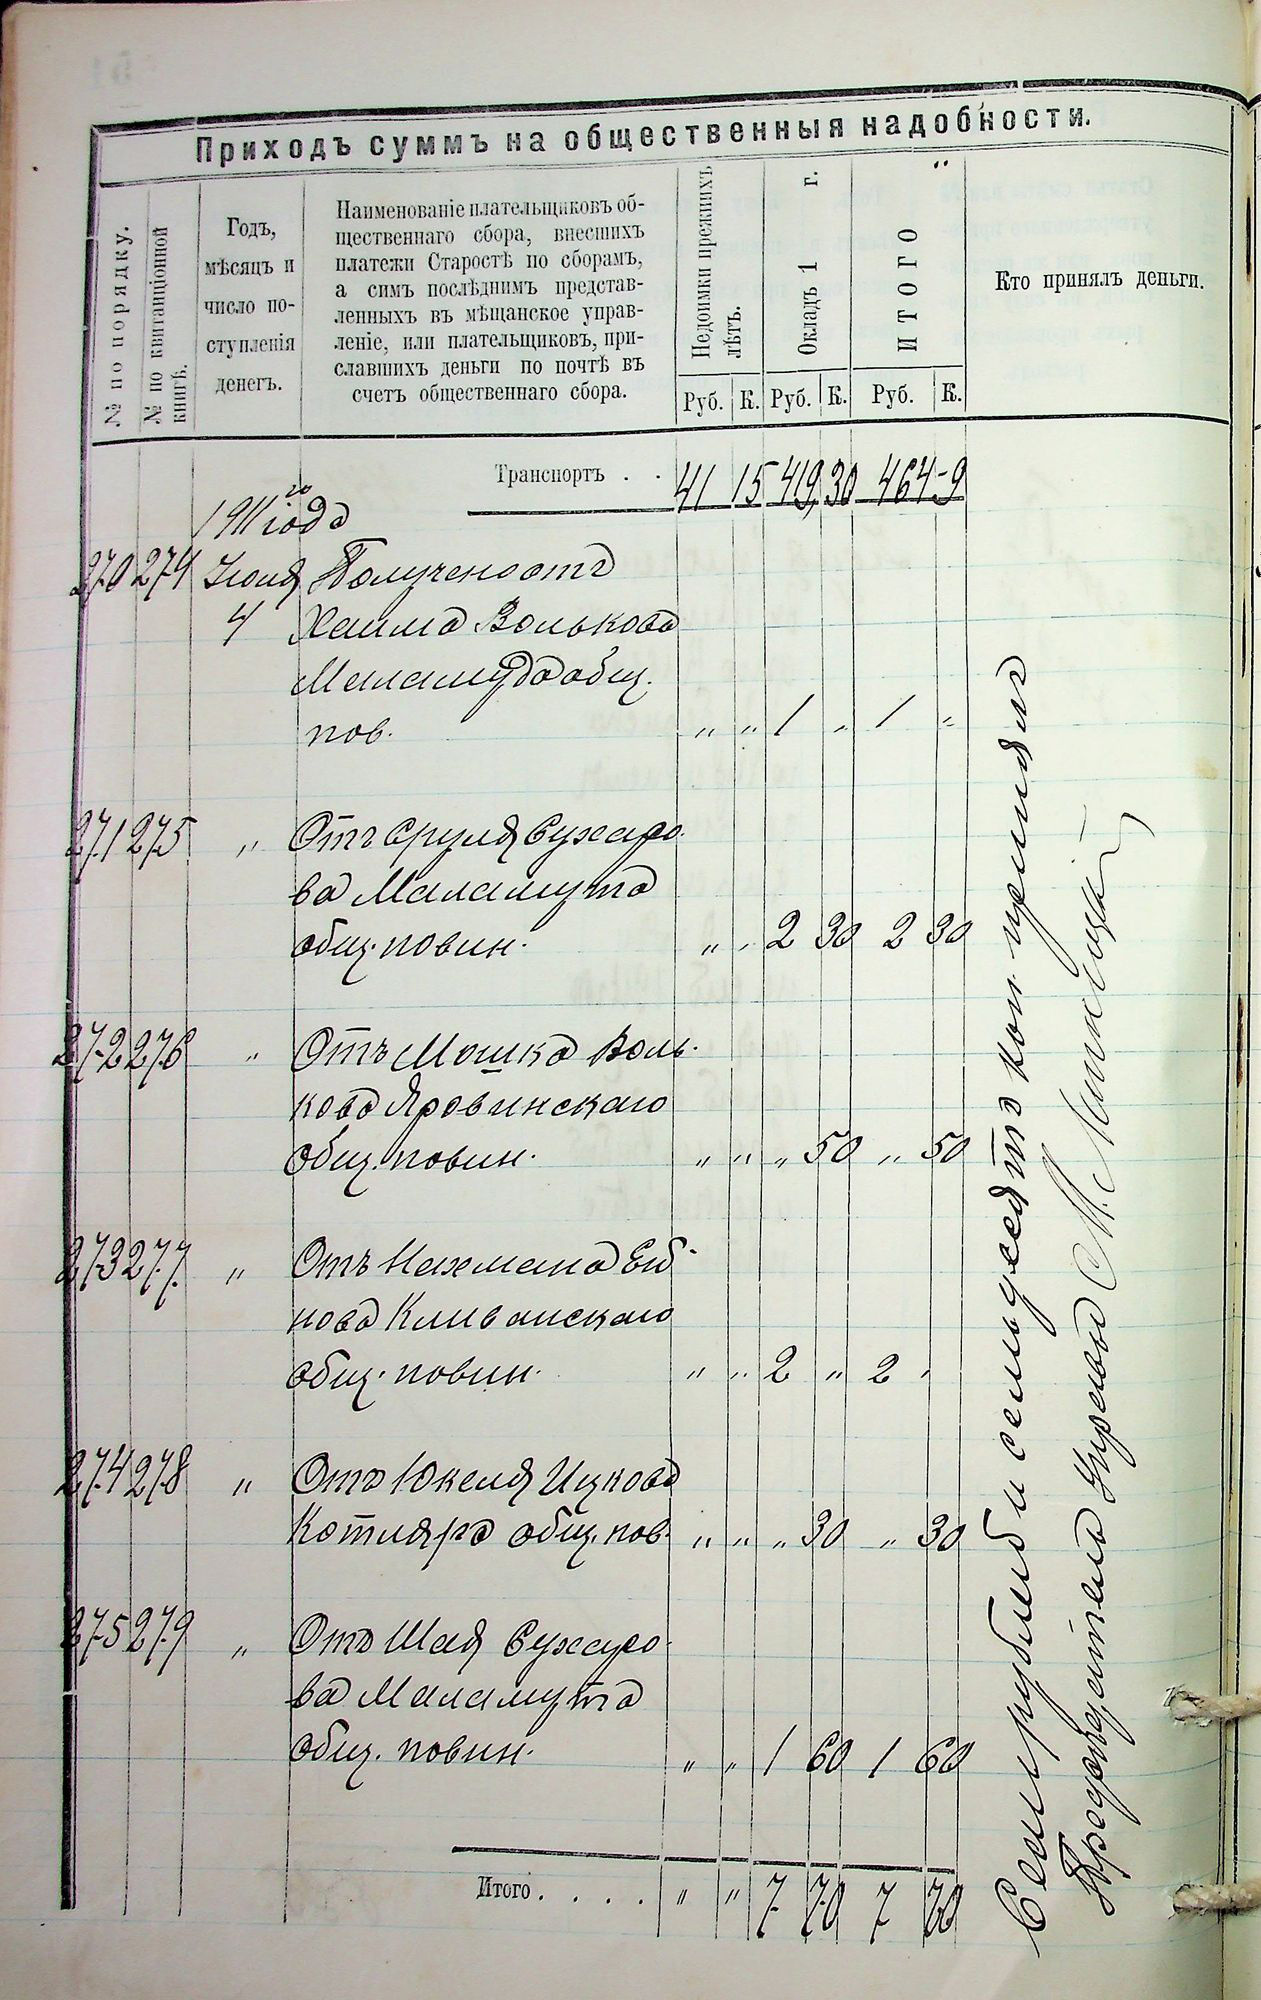 Приходъ суммъ на общественныя надобности.
№ по порядку.
№ по квитанціонной книгѣ.
Годъ,
мѣсяцъ и
число по-
ступленія
денегъ.
Наименованіе плательщиковъ об-
щественнаго сбора, внесшихъ
платежи Старостѣ по сборамъ,
а симъ послѣднимъ представ-
ленныхъ въ мѣщанское управ-
леніе, или плательщиковъ, при-
славшихъ деньги по почтѣ въ
счетъ общественнаго сбора.
Недоимки прежнихъ лѣтъ.
Окладъ 1 г.
ИТОГО
Кто принялъ деньги.
Руб. К. Руб. К. Руб. К.
Транспортъ . . 41 15 419 30 464 - 9
1911 го года
270 274 Іюля Получено отъ
4 Хаима Волькова
Маламуда общ.
пов. „ „ 1 „ 1 „
271 275 „ Отъ Сруля Сухаро-
ва Маламута
общ. повин. „ „ 2 30 2 30
272 276 „ Отъ Мошка Воль-
кова Яровинскаго
общ. повин. „ „ „ 50 „ 50
273 277 „ Отъ Нахмана
нова Кливанскаго
общ. повин. „ „ 2 „ 2 „
274 278 „ Отъ Юкеля Ицкова
Котляра общ. пов. „ „ „ 30 „ 30
275 279 „ Отъ Шая Сухаро-
ва Маламута
общ. повин. „ „ 1 60 1 60
Итого . . . . „ „ 7 70 7 70
Семь рублей и семьдесятъ коп. принялъ
Предсѣдатель Управы М.